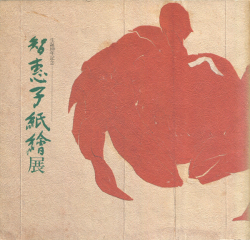 智恵子紙繪展